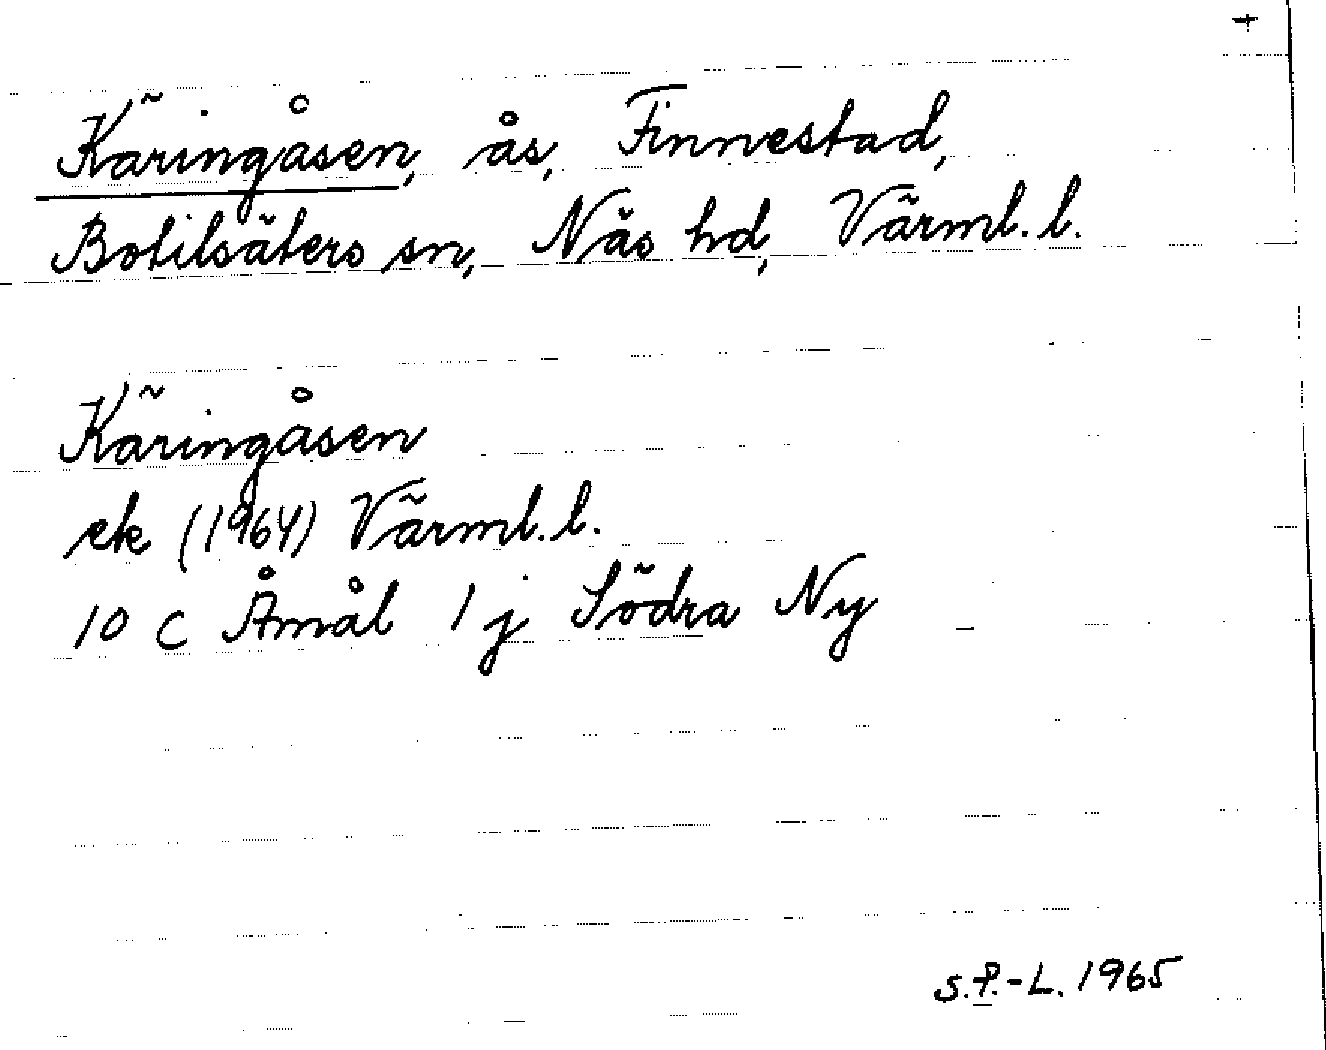 Käringåsen, ås, Finnestad,
Botilsäters sn, Näs hd, Värml. l.
Käringåsen
ek (1964) Värml. l.
10 C Åmål 1 j Södra Ny
S.P.-L. 1965